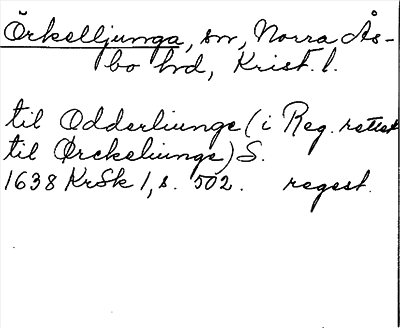 Örkelljunga, sn, Norra Ås-
bo hd, Krist. l.
til Odderliunge (i Reg. rettet
til Ørckeliunge) S.
1638 KrSk 1, s. 502. regest.